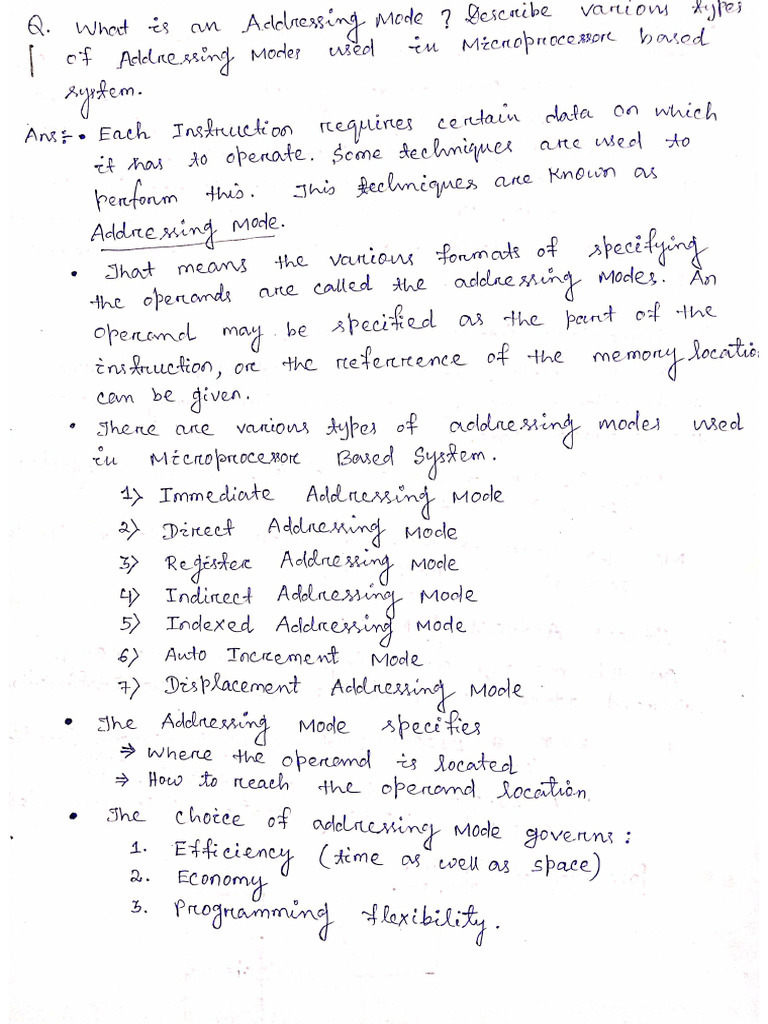 Q. What is an Addressing Mode ? Describe various types
of Addressing Modes used in Microprocessor based
system.
Ans:- • Each Instruction requires certain data on which
it has to operate. Some techniques are used to
perform this. This techniques are known as
Addressing Mode.
• That means the various formats of specifying
the operands are called the addressing Modes. An
operand may be specified as the part of the
instruction, or the reference of the memory location
can be given.
• There are various types of addressing modes used
in Microprocessor Based System.
1) Immediate Addressing Mode
2) Direct Addressing Mode
3) Register Addressing Mode
4) Indirect Addressing Mode
5) Indexed Addressing Mode
6) Auto Increment Mode
7) Displacement Addressing Mode
• The Addressing Mode specifies
⇒ Where the operand is located
⇒ How to reach the operand location.
• The choice of addressing Mode governs :
1. Efficiency (time as well as space)
2. Economy
3. Programming flexibility.